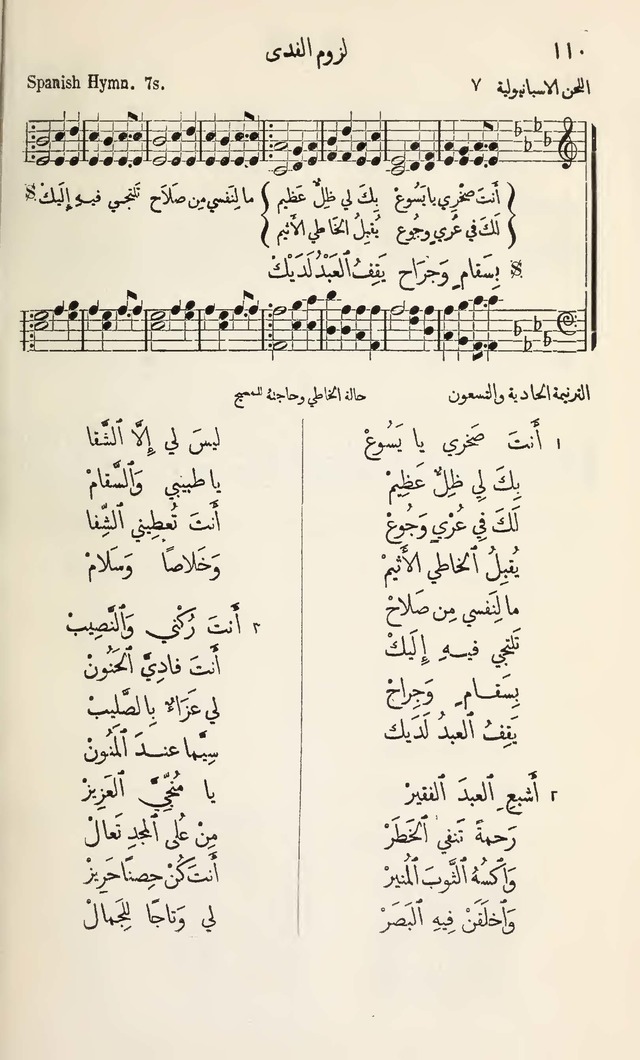 ١١٠
لزوم الفدى
Spanish Hymn. 7s.
اللحن الاسبانيولية ٧
أَنتَ صَخْرِي يا يَسُوعْ بِكَ لي ظِلٌّ عَظِيم
لَكَ في عُرْيٍ وَجُوع يُقبِلُ الخَاطِي الأَثيم
ما لِنَفسي مِن صَلَاح تَلتجي فيهِ إِلَيكْ
بِسَقامٍ وَجَرَاح يَقِفُ العَبْدُ لَدَيكْ
الترنيمة الحادية والتسعون
حالة الخاطي وحاجتهُ للمسيح
١ أَنتَ صَخري يا يَسُوعْ
بِكَ لِي ظِلٌّ عَظِيمْ
لَكَ فِي عُرْيٍ وَجُوعْ
يُقبِلُ ٱلخاطي الأَثيمْ
ما لِنَفسي مِن صَلَاحْ
تَلتجي فيهِ إِلَيكْ
بِسَقامٍ وَجِراحْ
يَقِفُ ٱلعبدُ لَدَيك
٢ أَشبعِ ٱلعبدَ ٱلفقيرْ
رَحمةً تَنفي ٱلخَطَرْ
وَٱكسُهُ ٱلثَّوبَ ٱلمُنيرْ
وَٱخلُقَنْ فيهِ ٱلبَصَرْ
ليسَ لي إِلَّا ٱلشَّقا
يا طبيبي وَٱلسَّقامْ
أَنتَ تُعطيني ٱلشِّفا
وَخَلاصًا وَسَلامْ
٢ أَنتَ رُكْني وَٱلنَّصِيبْ
أَنتَ فاديَّ ٱلحَنُونْ
لي عَزَاءٌ بِٱلصَّليبْ
سِيَّما عندَ ٱلمَنُونْ
يا مُنجِّيَّ ٱلعَزيزْ
مِنْ عُلَى ٱلمجدِ تَعالْ
أَنتَ كُنْ حِصنًا حَرِيزْ
لي وَتاجًا لِلجَمالْ